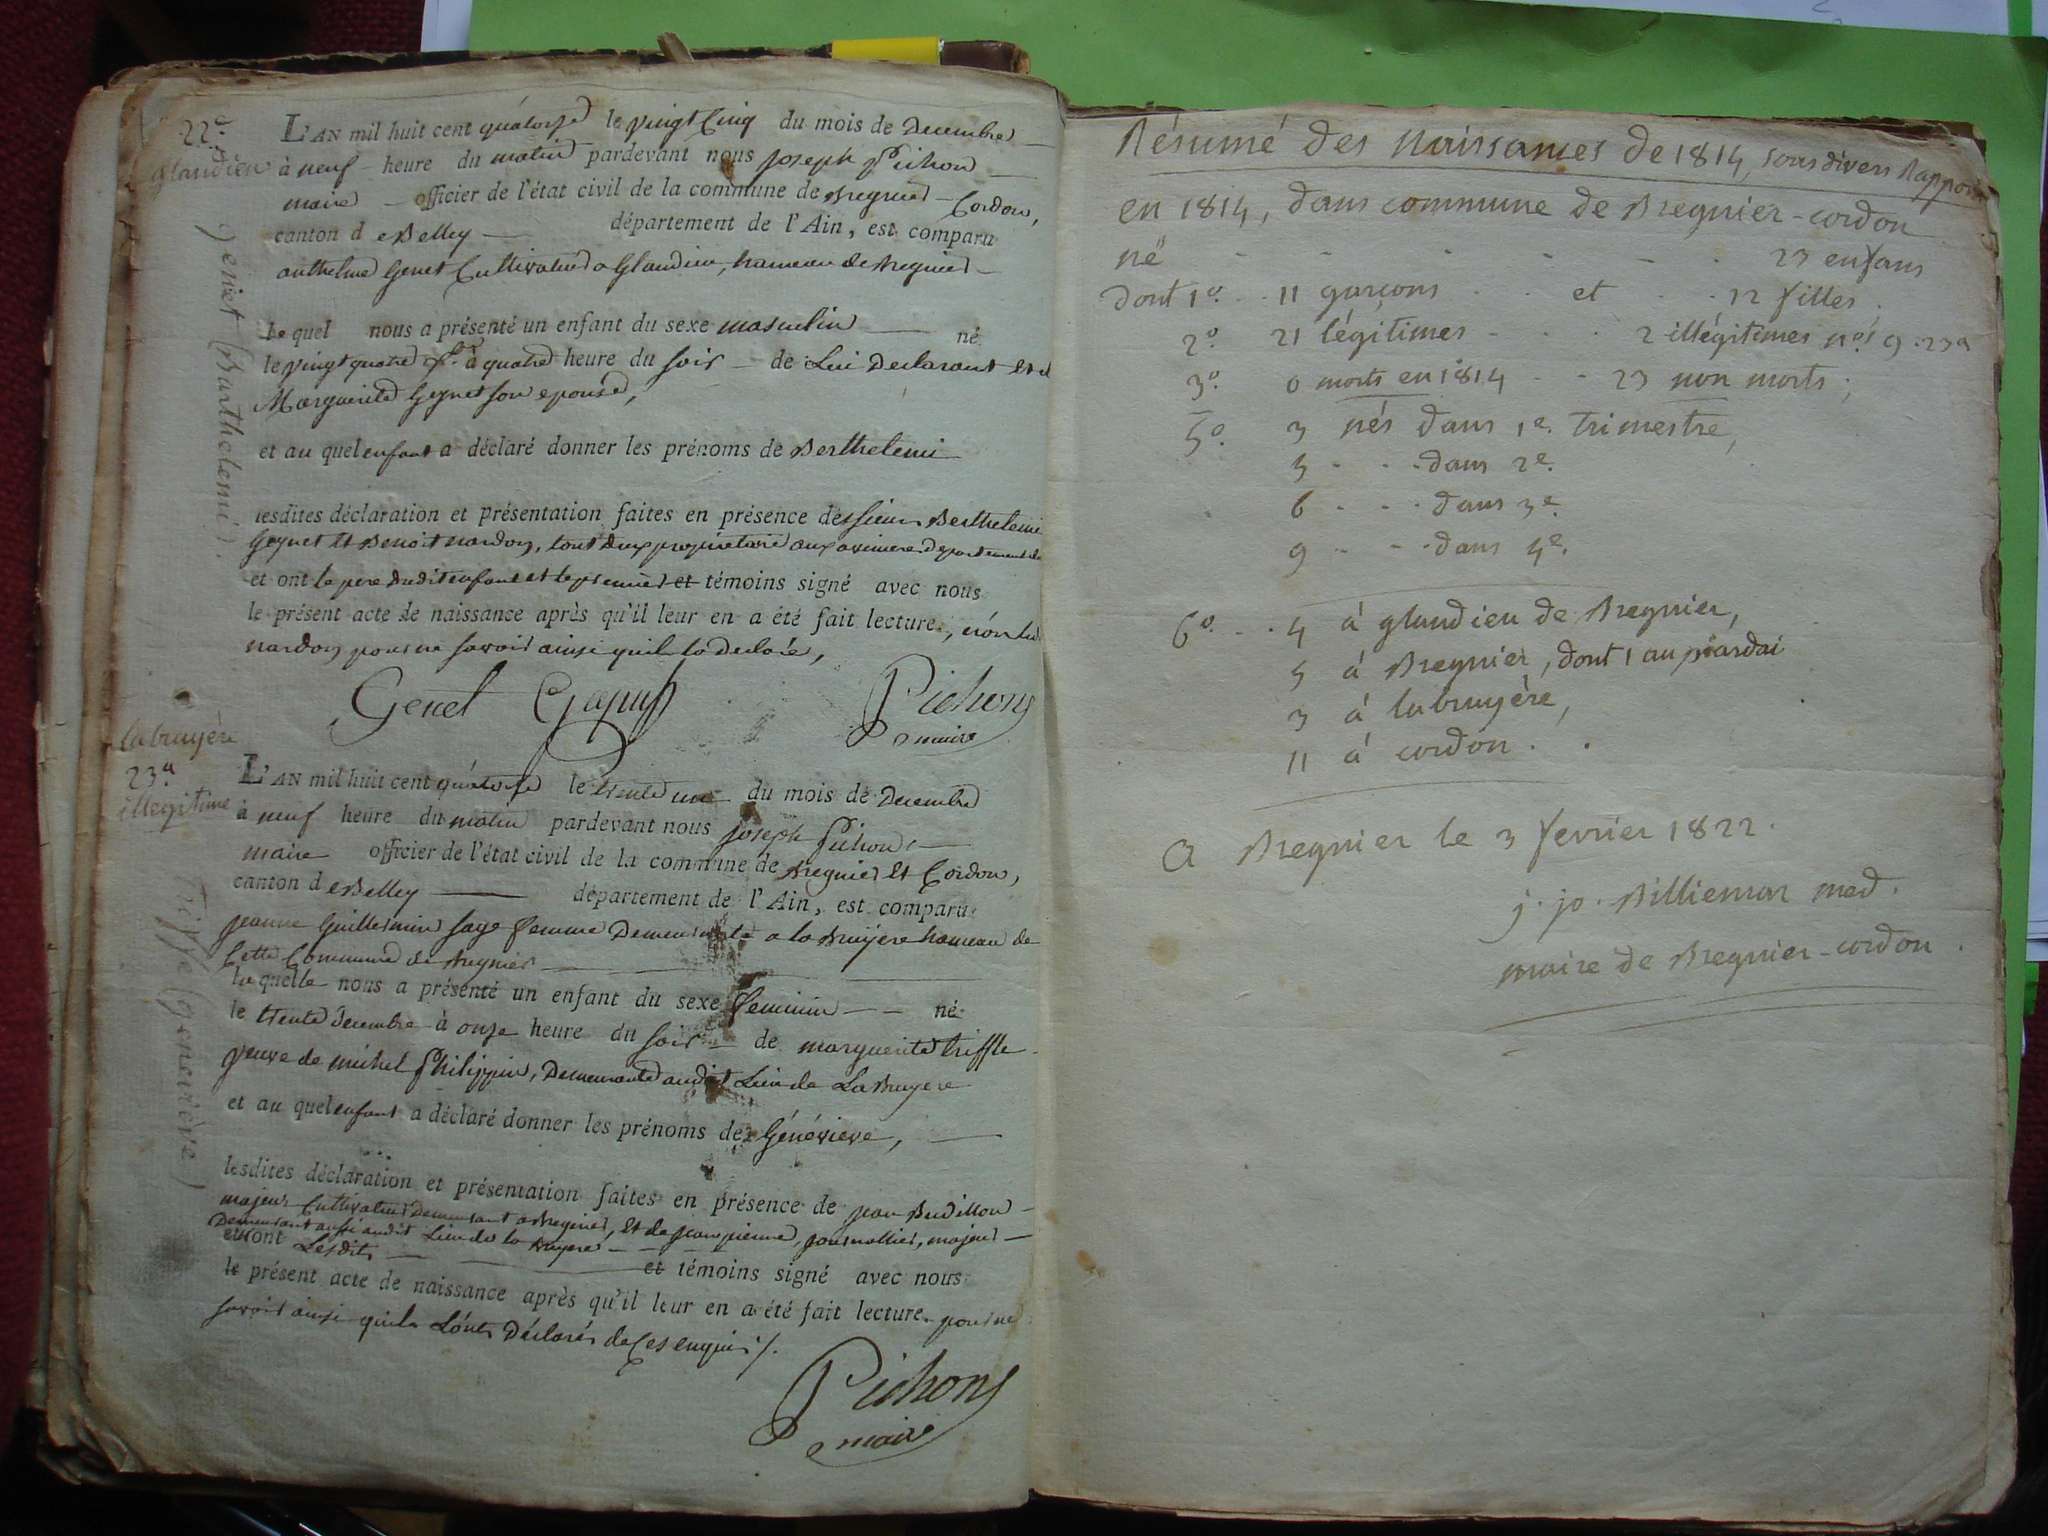 22e
glandieu
genet (Barthelemi).
L'AN mil huit cent quatorze le vingt cinq du mois de Decembre
à neuf heure du matin pardevant nous joseph Pichon
maire officier de l'état civil de la commune de Bregnier - Cordon,
canton de Belley département de l'Ain, est comparu
anthelme Genet Cultivateur a Glandieu, hameau de Bregnier
le quel nous a présenté un enfant du sexe masculin né
le vingt quatre à quatre heure du soir de Lui Declarant et de
Marguerite Geynet son epouse,
et au quel enfant a déclaré donner les prénoms de Berthelemi
lesdites déclaration et présentation faites en présence des sieurs Berthelemi
Geynet et Benoit nardon, tout deux proprietaire
et ont le pere dudit enfant et le premier et témoins signé avec nous
le présent acte de naissance après qu'il leur en a été fait lecture, non led
nardon pour ne savoir ainsi quil la declaré,
Genet Pichon
maire
labruyère
23e
illegitime
triffle (genevieve)
L'AN mil huit cent quatorze le trente une du mois de Decembre
à neuf heure du matin pardevant nous joseph Pichon,
maire officier de l'état civil de la commune de Bregnier et Cordon,
canton de Belley département de l'Ain, est comparu
jeanne Guillermin sage femme Demeurante a la Bruyere hameau de
cette Commune de Bregnier
la quelle nous a présenté un enfant du sexe feminin né
le trente decembre à onze heure du soir de marguerite triffle
veuve de michel Philippin, Demeurante audit Lieu de La Bruyere
et au quel enfant a déclaré donner les prénoms de Généviève,
lesdites déclaration et présentation faites en présence de jean Budillon
majeur Cultivateur Demeurant a Bregnier, et de jean pierre, journallier, majeur
Demeurant aussi audit Lieu de la Bruyere
et ont Lesdits et témoins signé avec nous
le présent acte de naissance après qu'il leur en a été fait lecture. pour ne
savoir ainsi quils L'ont Déclarés de Ces enquis ./.
Pichon
maire
Résumé des Naissances de 1814, sous divers Rapports
en 1814, dans commune de Bregnier-cordon
né 23 enfans
dont 1o. 11 garçons et 12 filles.
2o. 21 légitimes 2 illégitimes nos 9 . 23a
3o. 0 morts en 1814 23 non morts;
5o. 3 nés dans 1e. trimestre,
5 dans 2e.
6 dans 3e.
9 dans 4e.
6o. 4 à glandieu de Bregnier,
5 à Bregnier, dont 1 au piardai
3 à labruyère,
11 à cordon.
a Bregnier le 3 fevrier 1822.
j. jo. Billiemar med.
maire de Bregnier-cordon.